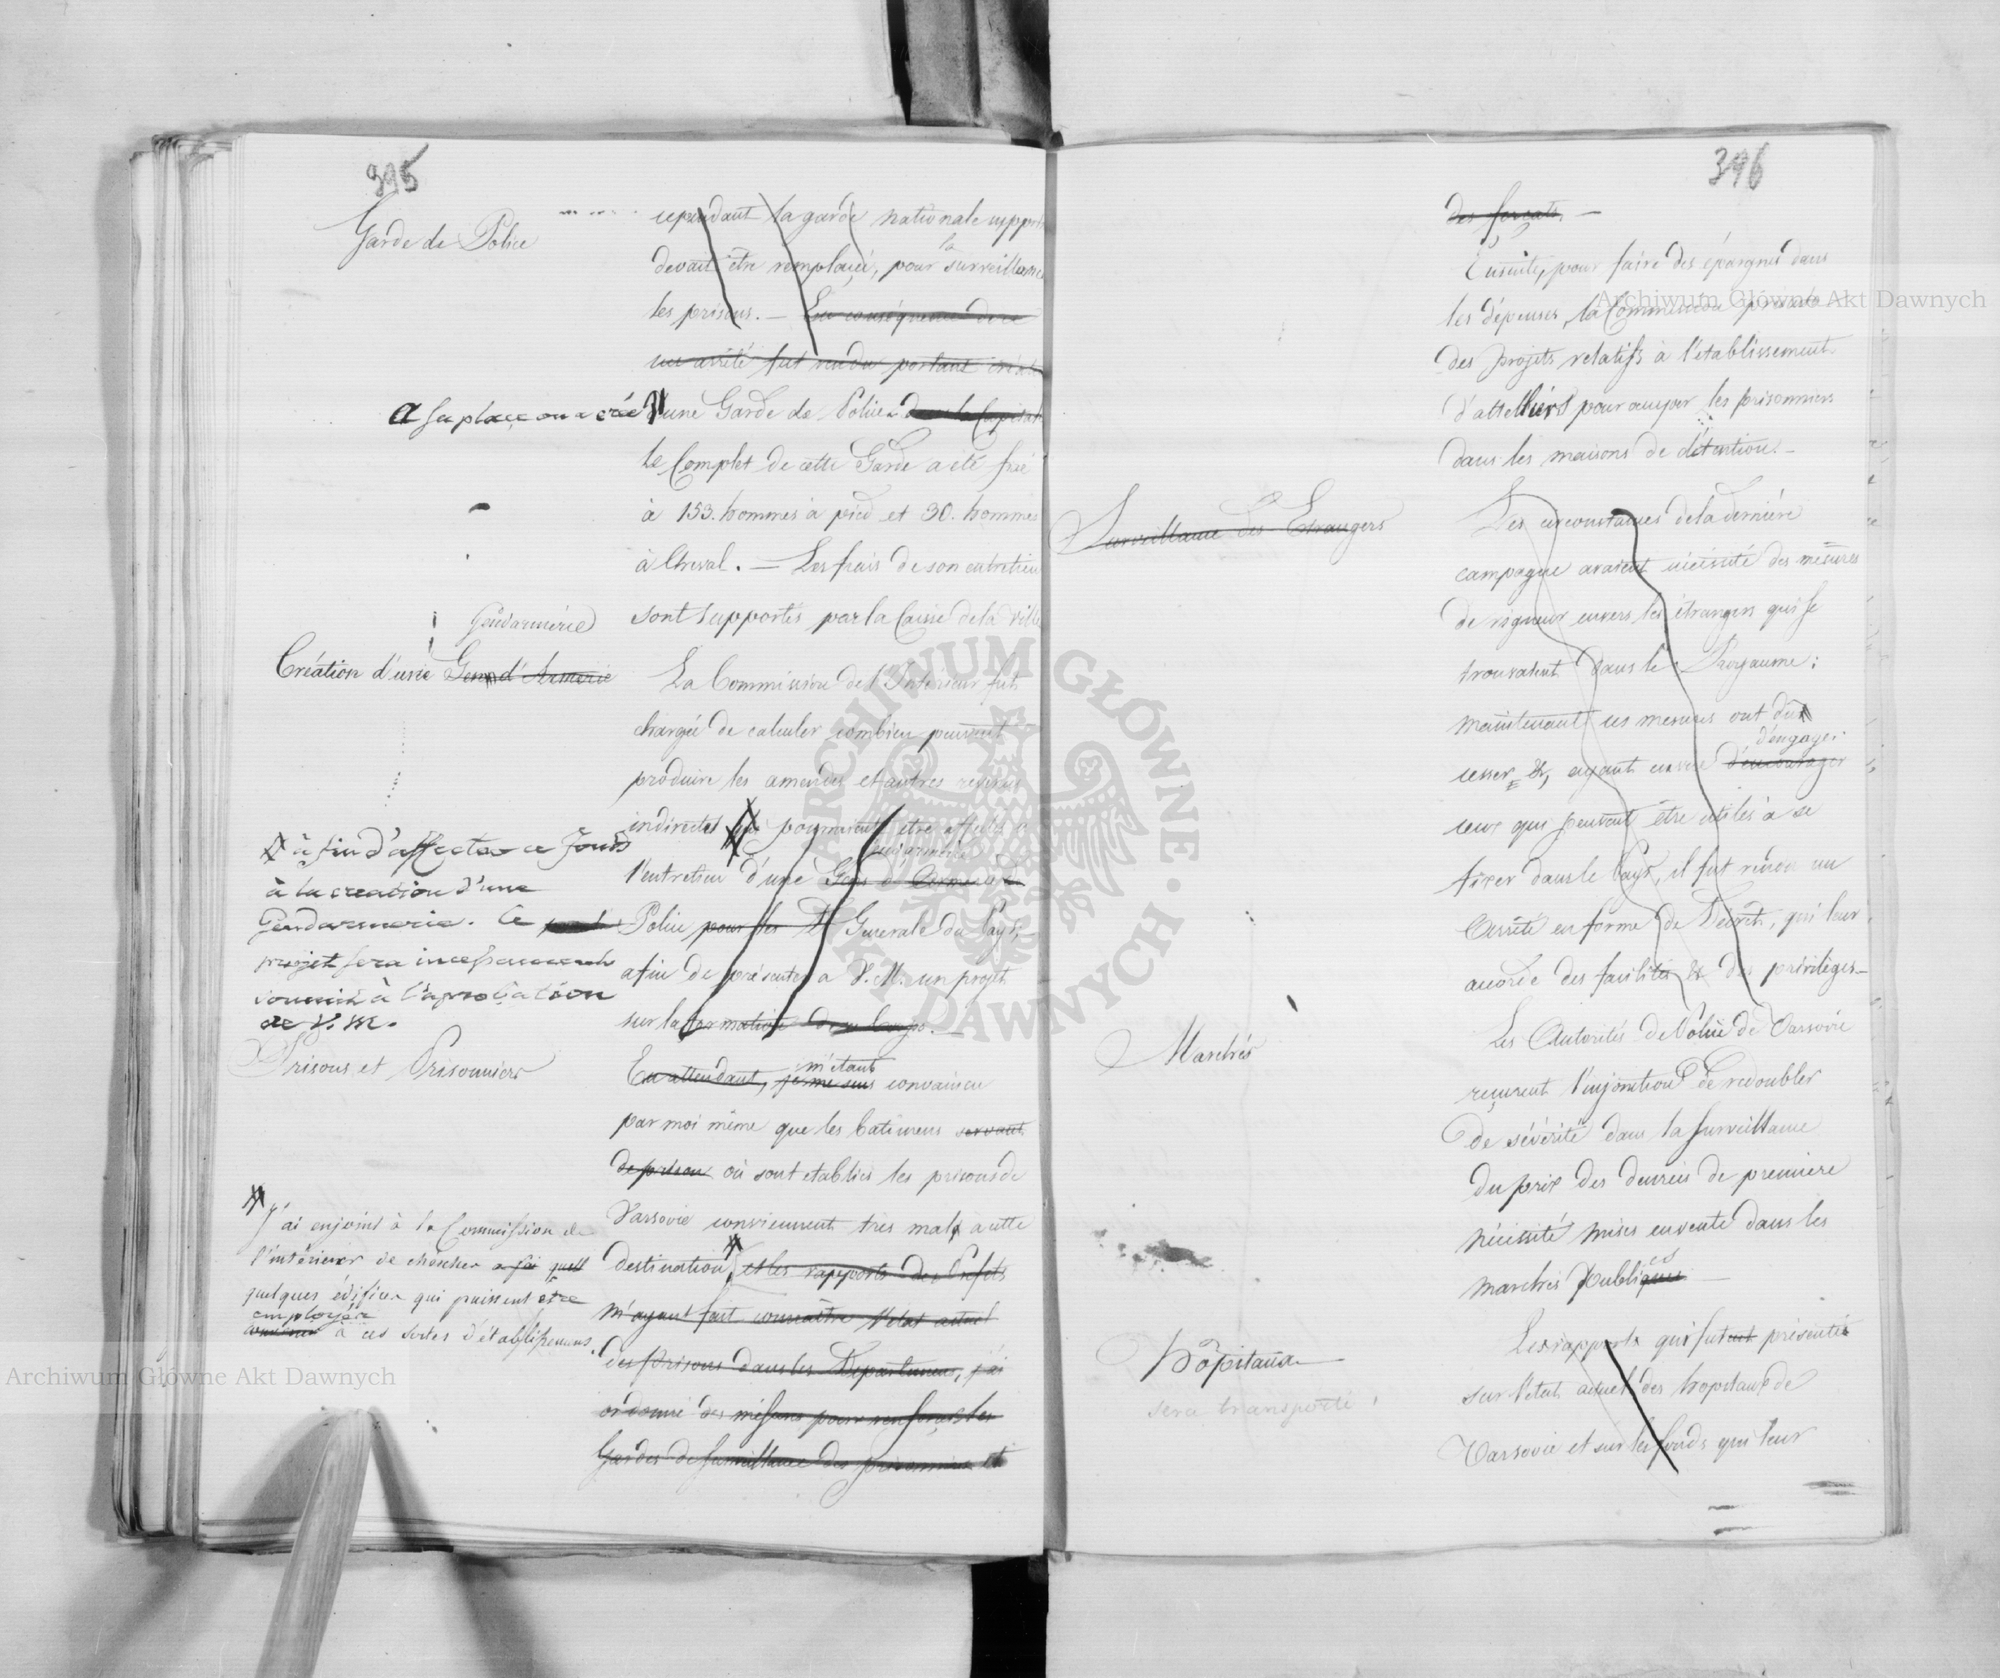 395
Garde de Police
cependant la garde nationale suppri
devait être remplacée, pour la surveillance
les prisons. — En conséquence de ce
un arrêté fut rendu portant créat
A sa place on a créé d'une Garde de Police dans la Capitale
Le Complet de cette Garde a été fixé
à 153. hommes à pied et 30. hommes
à Cheval. — Les frais de son entretien
sont supportés par la Caisse de la ville
Gendarmerie
Création d'une Gend'Armerie
La Commission de l'Intérieur fut
chargée de calculer combien peuvent
produire les amendes et autres revenus
indirectes qui pourraient être affectés à
l'entretien d'une Gens d'Armerie
Police pour les Générale du Pays,
afin de présenter a V. M. un projet
sur la formation de ce Corps. —
# à fin d'affecter ce fond
à la creation d'une
Gendarmerie. Ce
projet sera incessamment
soumis à l'aprobation
de V. M.
Prisons et Prisonniers
En attendant, je me suis m'étant convaincu
par moi même que les batimens servant
de prison où sont etablies les prisons de
Varsovie conviennent tres mal, a cette
destination, # et les rapports des Préfets
m'ayant fait connaitre l'état actuel
des Prisons dans les Départemens, j'ai
ordonné des mesures pour renforcer les
Gardes de surveillance des prisonniers et
# J'ai enjoint à la Commission de
l'intérieur de chercher
quelques édifices qui puissent être
employés
à ces sortes d'établissemens.
396
des forçats. —
Ensuite, pour faire des épargnes dans
les dépenses, la Commission présenta
des projets relatifs à l'établissement
d'attelliers pour occuper les prisonniers
dans les maisons de détention. —
Surveillance des Etrangers
Les circonstances de la dernière
campagne avaient nécessité des mesures
de rigueur envers les étrangers qui se
trouvaient dans le Royaume;
maintenant ces mesures ont dû
d'engager
cesser &, ayant en vue d'encourager
ceux qui peuvent être utiles à se
fixer dans le Pays, il fut rendu un
Arrêté en forme de Décret, qui leur
accorde des facilités & des privilèges —
Marchés
Les Autorités de Police de Varsovie
reçurent l'injonction de redoubler
de sévérité dans la surveillance
du prix des denrées de première
nécessité mises en vente dans les
marchés Publiques —
Hôpitaux
sera transporté
Les rapports qui furent présentés
sur l'état actuel des hopitaux de
Varsovie et sur les fonds qui leur
Archiwum Główne Akt Dawnych
Archiwum Główne Akt Dawnych
ARCHIWUM GŁÓWNE AKT DAWNYCH